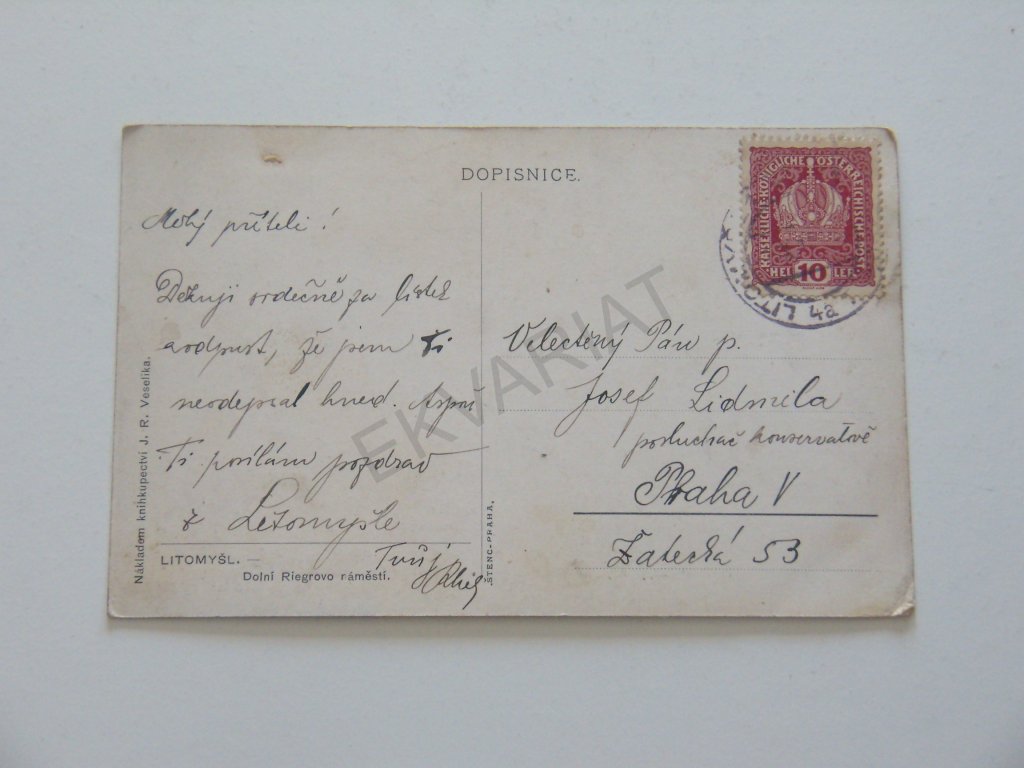 DOPISNICE.
KAISERLICHE KÖNIGLICHE ÖSTERREICHISCHE POST
HEL 10 LER
LITOMY 4a
Milý příteli!
Děkuji srdečně za lístek
a odpust, že jsem Ti
neodepsal hned. Aspoň
Ti posílám pozdrav
z Litomyšle
Tvůj
Velectěný Pán p.
Josef Lidmila
posluchač konservatoře
Praha V
Žatecká 53
LITOMYŠL. —
Dolní Riegrovo náměstí.
Nákladem knihkupectví J. R. Veselíka.
ŠTENC-PRAHA.
EKVARIAT